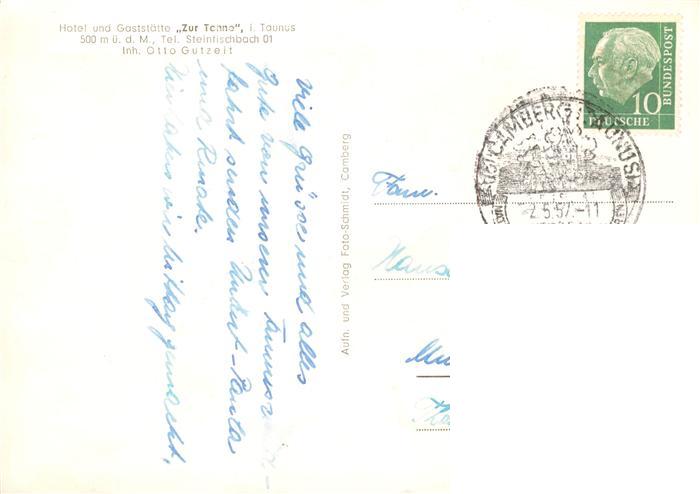 Hotel und Gaststätte „Zur Tanne", i. Taunus
500 m ü. d. M., Tel. Steinfischbach 01
Inh. Otto Gutzeit
Viele Grüsse und alles
Gute von unserer Taunus-
fahrt senden
und Renate.
Hier haben wir Mittag gemacht.
Aufn. und Verlag Foto-Schmidt, Camberg
Fam.
10
DEUTSCHE
BUNDESPOST
CAMBERG TAUNUS
2.5.57.-11